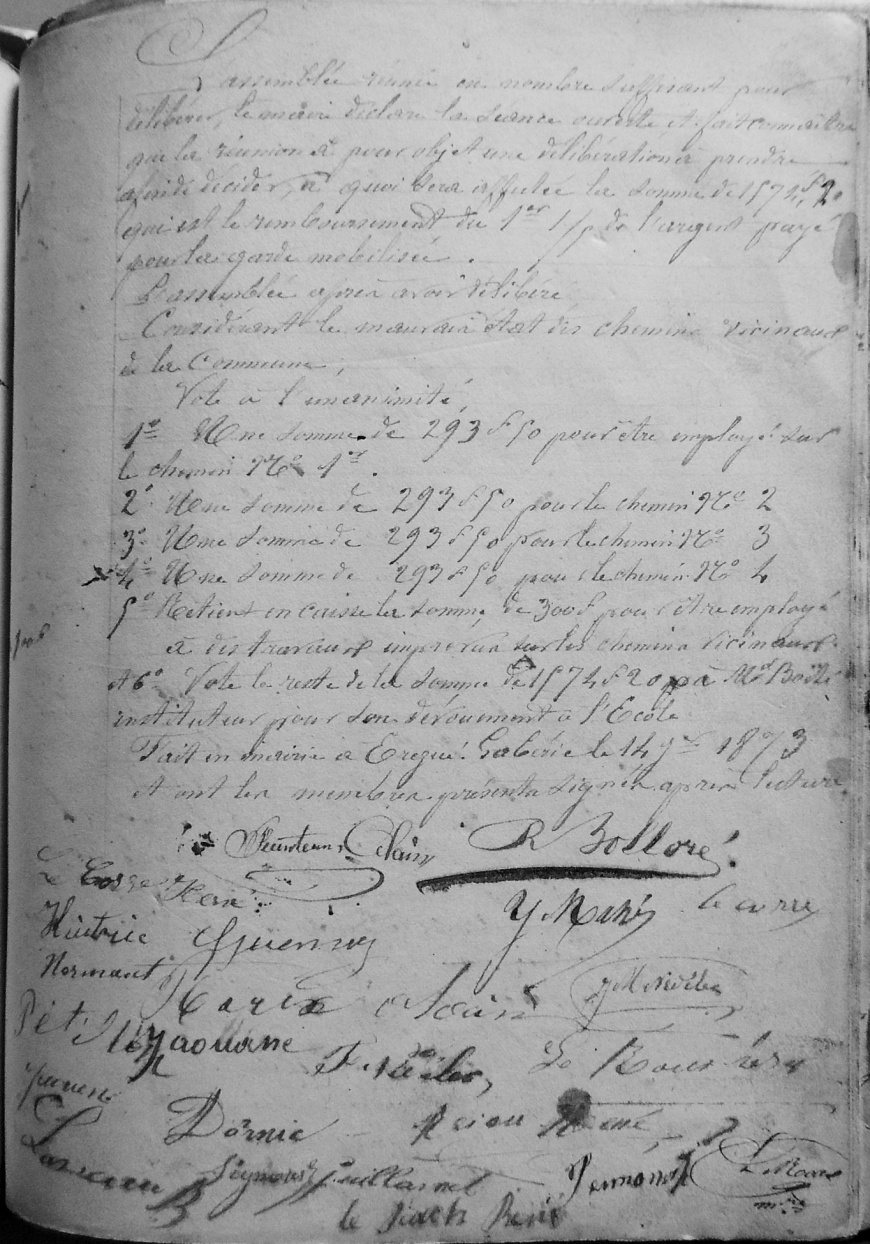 L'assemblée réunie en nombre suffisant pour
délibérer, le maire déclare la séance ouverte et fait connaître
que la réunion a pour objet une délibération à prendre
afin de décider, à quoi sera affectée la somme de 1574f,20
qui est le remboursement du 1er 1/ de l'argent payé
pour la garde mobilisée.
L'assemblée après avoir délibéré
Considérant le mauvais état des chemins vicinaux
de la Commune,
Vote à l'unanimité,
1º Une somme de 293f50 pour être employé sur
le chemin Nº 1er.
2º Une somme de 293f50 pour le chemin Nº 2
3º Une somme de 293f50 pour le chemin Nº 3
4º Une somme de 293f50 pour le chemin Nº 4
5º Retient en caisse la somme, de 300f pour être employé
à des travaux imprévus sur les chemins vicinaux.
et 6º Vote le reste de la somme de 1574f20 à Mr
instituteur pour son dévouement à l'Ecole
Fait en mairie à Ergué-Gabéric le 14 1873
et ont les membres présents signés après lecture.
Alain R Bolloré
René Y Mahé
Guennou
Normant
Alain
Pét Le
Le
Dornic René
Guillaume
René